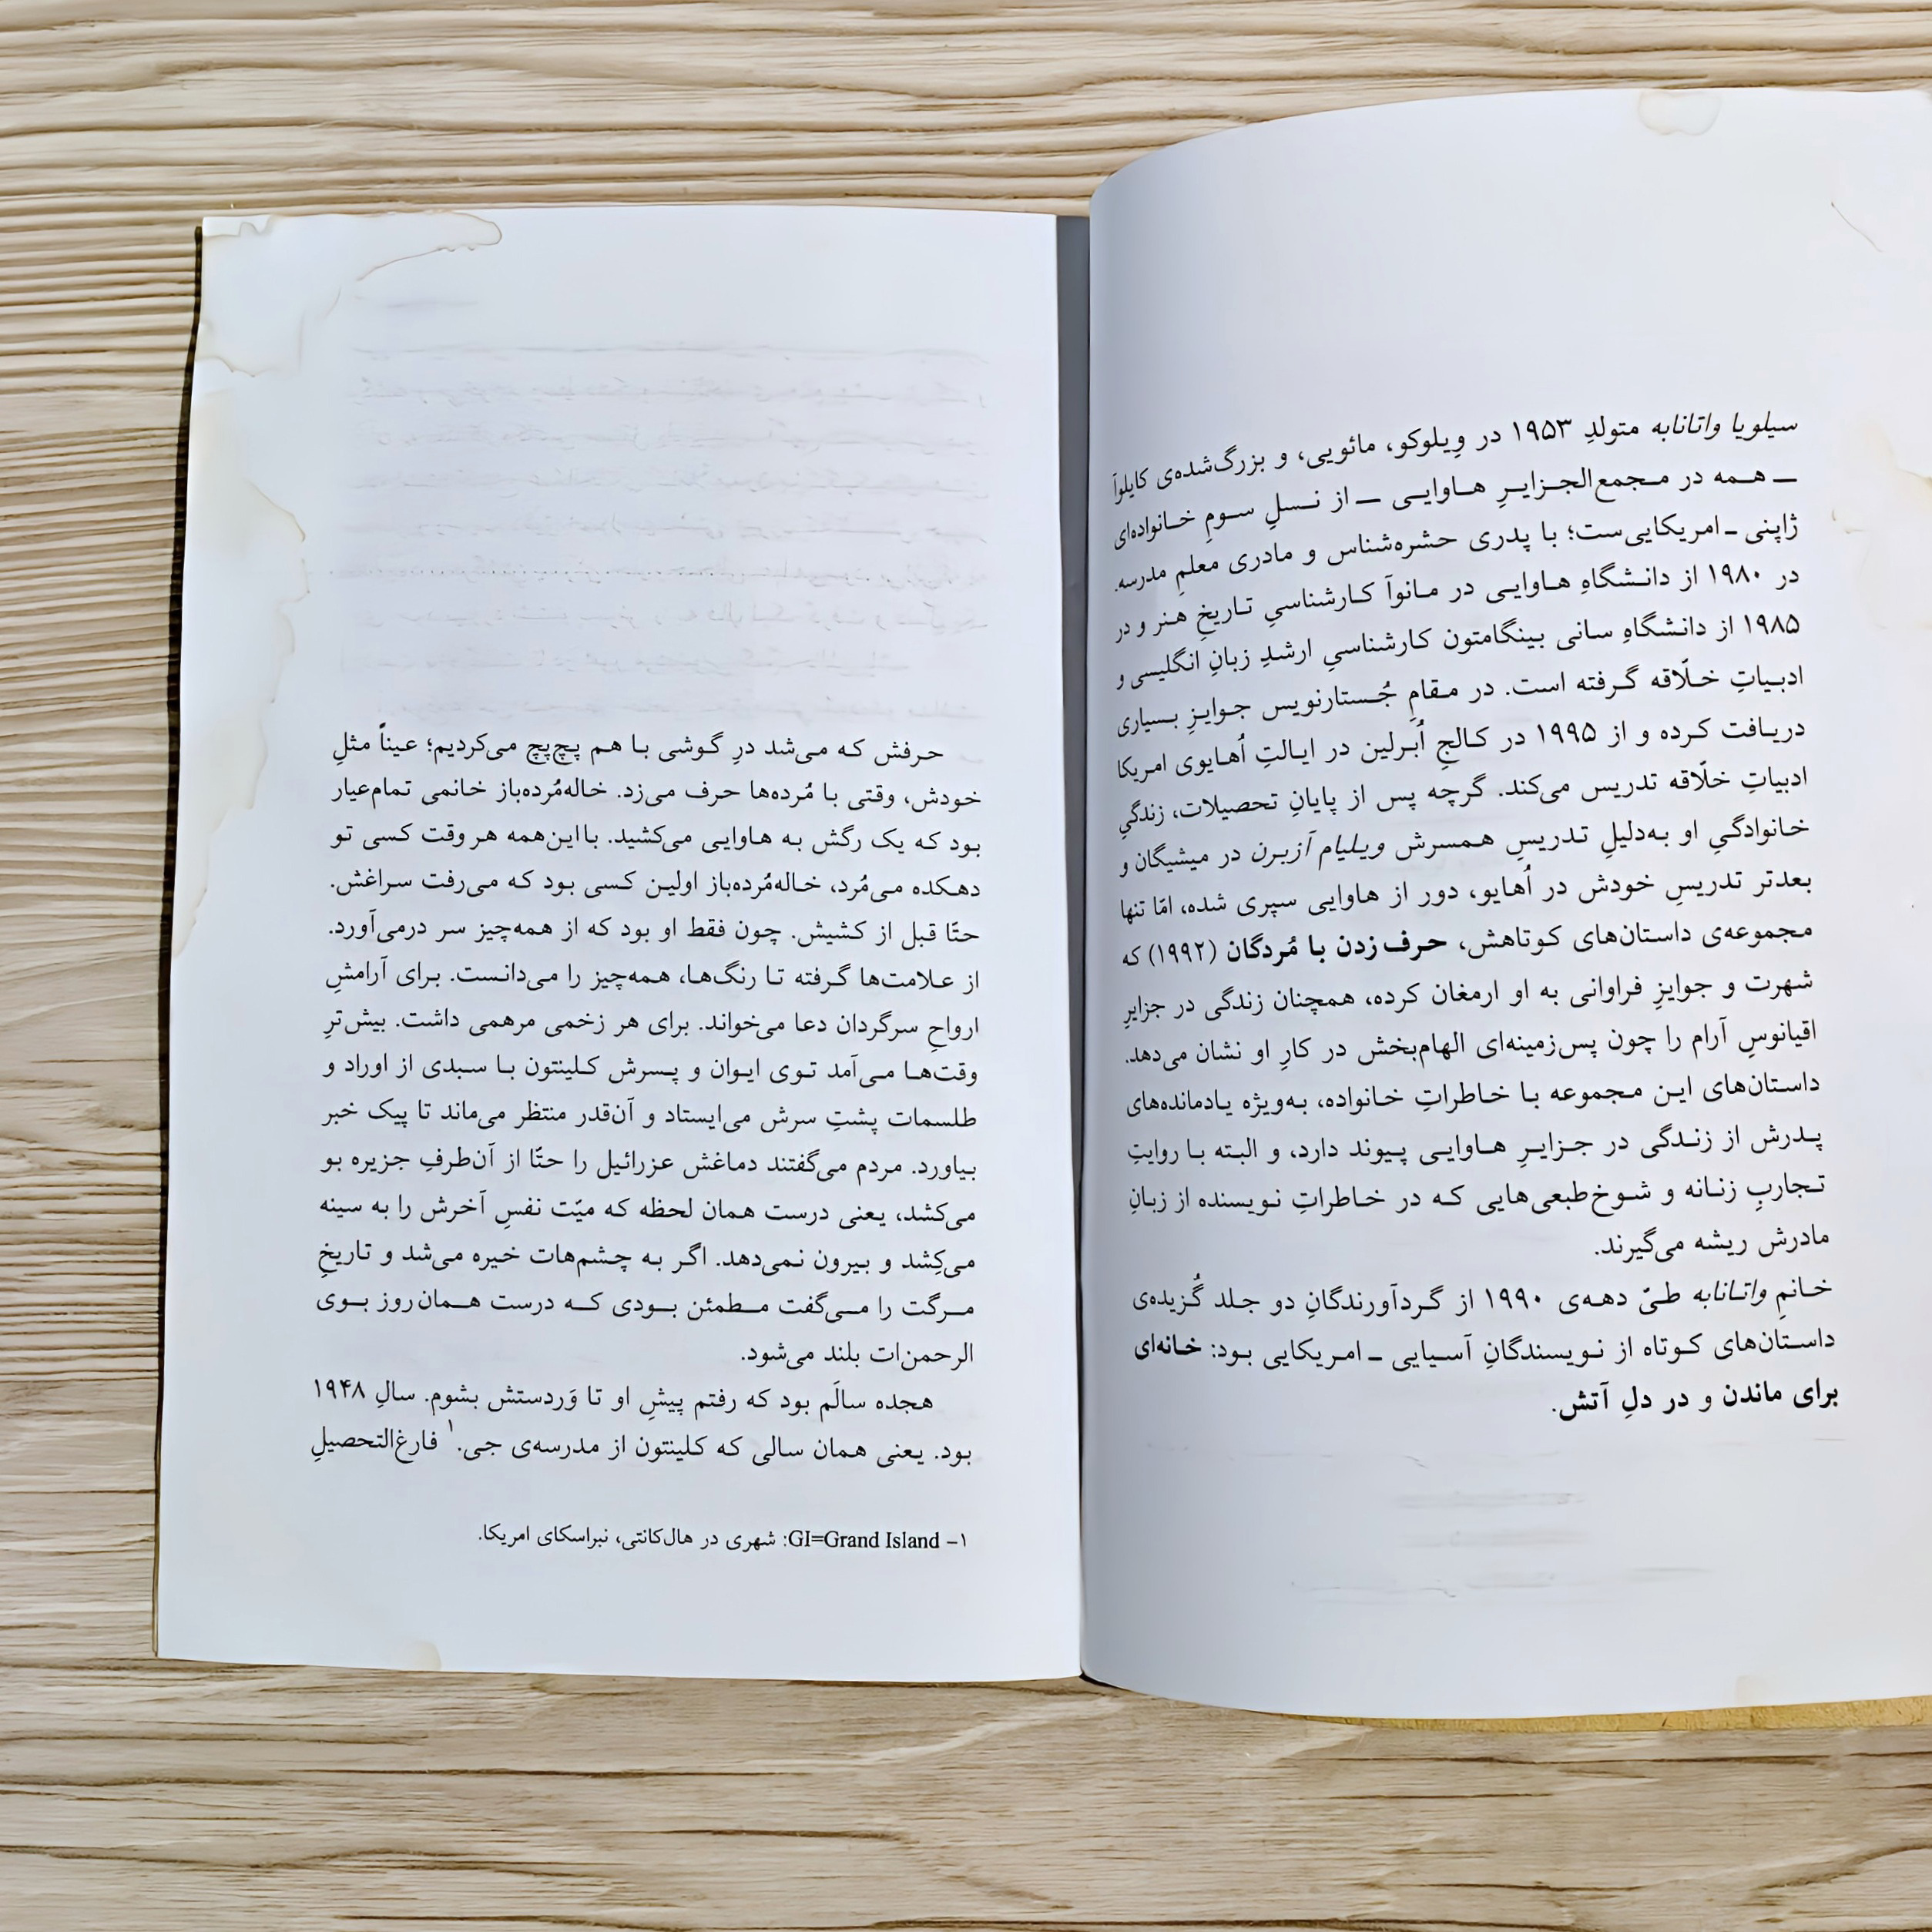 سیلویا واتانابه متولدِ ۱۹۵۳ در وِیلوکو، مائویی، و بزرگ‌شده‌ی کایلوآ
ــ همه در مجمع‌الجزایرِ هاوایی ــ از نسلِ سومِ خانواده‌ای
ژاپنی ـ امریکایی‌ست؛ با پدری حشره‌شناس و مادری معلمِ مدرسه.
در ۱۹۸۰ از دانشگاهِ هاوایی در مانوآ کارشناسیِ تاریخِ هنر و در
۱۹۸۵ از دانشگاهِ سانی بینگامتون کارشناسیِ ارشدِ زبانِ انگلیسی و
ادبیاتِ خلّاقه گرفته است. در مقامِ جُستارنویس جوایزِ بسیاری
دریافت کرده و از ۱۹۹۵ در کالجِ اُبرلین در ایالتِ اُهایوی امریکا
ادبیاتِ خلّاقه تدریس می‌کند. گرچه پس از پایانِ تحصیلات، زندگیِ
خانوادگیِ او به‌دلیلِ تدریسِ همسرش ویلیام آزبرن در میشیگان و
بعدتر تدریسِ خودش در اُهایو، دور از هاوایی سپری شده، امّا تنها
مجموعه‌ی داستان‌های کوتاهش، حرف زدن با مُردگان (۱۹۹۲) که
شهرت و جوایزِ فراوانی به او ارمغان کرده، همچنان زندگی در جزایرِ
اقیانوسِ آرام را چون پس‌زمینه‌ای الهام‌بخش در کارِ او نشان می‌دهد.
داستان‌های این مجموعه با خاطراتِ خانواده، به‌ویژه یادمانده‌های
پدرش از زندگی در جزایرِ هاوایی پیوند دارد، و البته با روایتِ
تجاربِ زنانه و شوخ‌طبعی‌هایی که در خاطراتِ نویسنده از زبانِ
مادرش ریشه می‌گیرند.
خانمِ واتانابه طیّ دهه‌ی ۱۹۹۰ از گردآورندگانِ دو جلد گُزیده‌ی
داستان‌های کوتاه از نویسندگانِ آسیایی ـ امریکایی بود: خانه‌ای
برای ماندن و در دلِ آتش.
حرفش که می‌شد درِ گوشی با هم پچ‌پچ می‌کردیم؛ عیناً مثلِ
خودش، وقتی با مُرده‌ها حرف می‌زد. خاله‌مُرده‌باز خانمی تمام‌عیار
بود که یک رگش به هاوایی می‌کشید. بااین‌همه هر وقت کسی تو
دهکده می‌مُرد، خاله‌مُرده‌باز اولین کسی بود که می‌رفت سراغش.
حتّا قبل از کشیش. چون فقط او بود که از همه‌چیز سر درمی‌آورد.
از علامت‌ها گرفته تا رنگ‌ها، همه‌چیز را می‌دانست. برای آرامشِ
ارواحِ سرگردان دعا می‌خواند. برای هر زخمی مرهمی داشت. بیش‌ترِ
وقت‌ها می‌آمد توی ایوان و پسرش کلینتون با سبدی از اوراد و
طلسمات پشتِ سرش می‌ایستاد و آن‌قدر منتظر می‌ماند تا پیک خبر
بیاورد. مردم می‌گفتند دماغش عزرائیل را حتّا از آن‌طرفِ جزیره بو
می‌کشد، یعنی درست همان لحظه که میّت نفسِ آخرش را به سینه
می‌کِشد و بیرون نمی‌دهد. اگر به چشم‌هات خیره می‌شد و تاریخِ
مرگت را می‌گفت مطمئن بودی که درست همان‌روز بوی
الرحمن‌ات بلند می‌شود.
هجده سالَم بود که رفتم پیشِ او تا وَردستش بشوم. سالِ ۱۹۴۸
بود. یعنی همان سالی که کلینتون از مدرسه‌ی جی.۱ فارغ‌التحصیلِ
۱– GI=Grand Island: شهری در هال‌کانتی، نبراسکای امریکا.